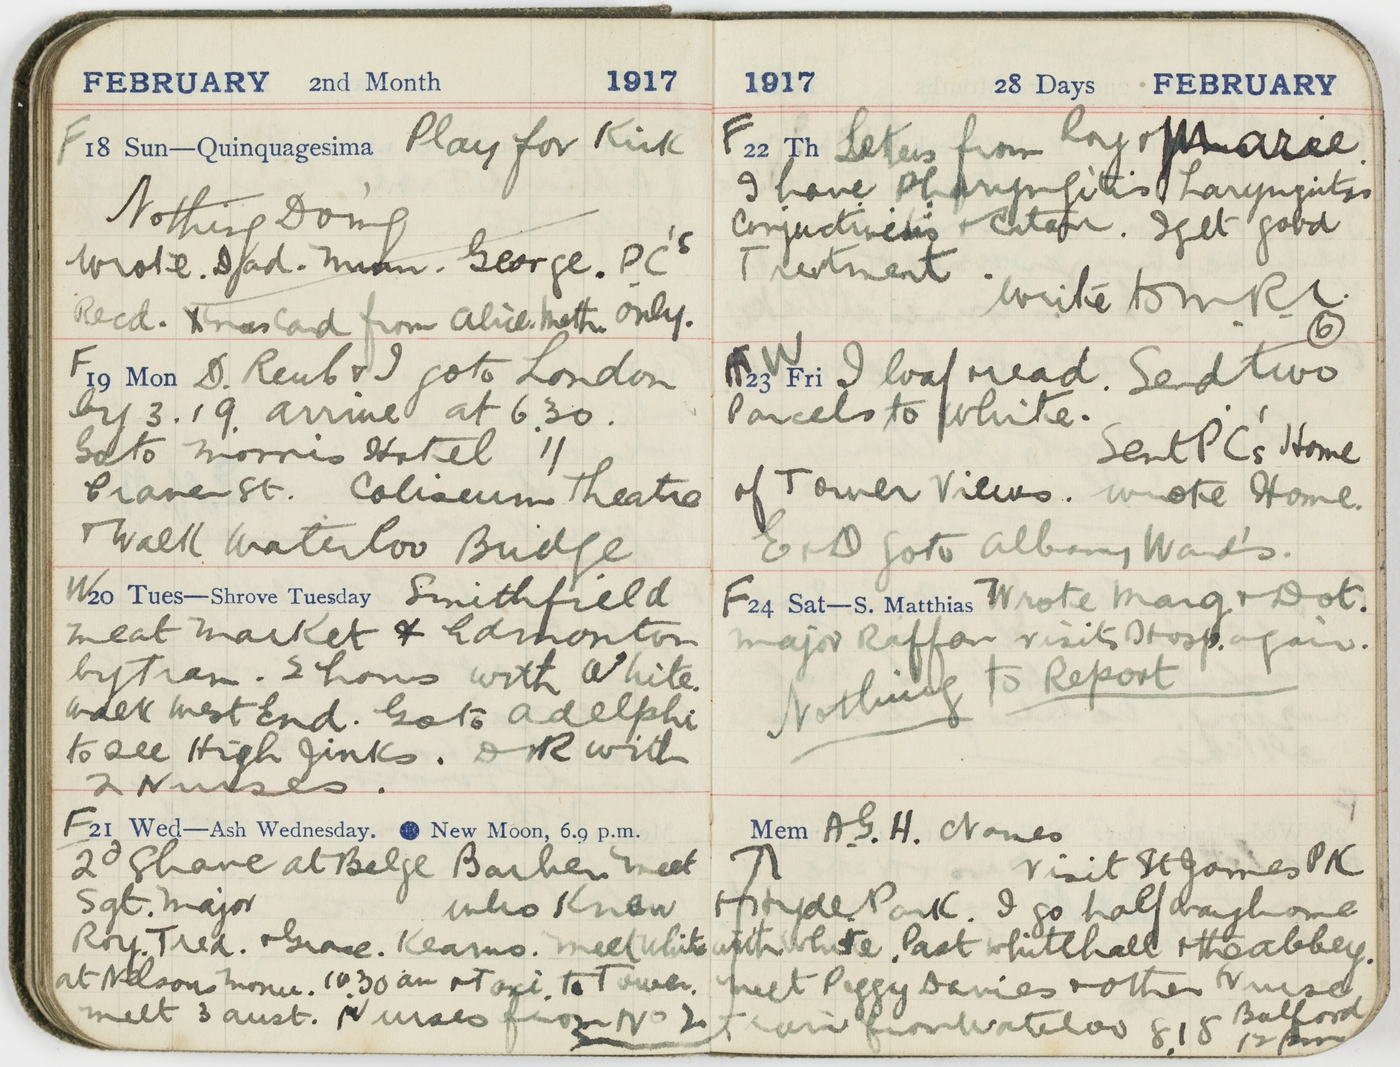 FEBRUARY 2nd Month 1917
F 18 Sun—Quinquagesima Play for Kirk
Nothing Doing
Wrote. Dad. Mum. George. PC's
Recd. Xmas Card from Alice. Meth. only.
F 19 Mon D. Reub & I go to London
by 3.19. arrive at 6.30.
Go to Morris Hotel 11
Craven St. Coliseum Theatre
& Walk Waterloo Bridge
W 20 Tues—Shrove Tuesday Smithfield
meat market & Edmonton
by Tram. 2 hours with White.
Walk West End. Go to Adelphi
to see High Jinks. D & R with
2 Nurses.
F 21 Wed—Ash Wednesday. New Moon, 6.9 p.m.
2d Shave at Belge Barber. meet
Sgt. Major who Knew
Roy. Tred. & Grace. Kearns. meet White
at Nelsons Monu. 10.30 am & Taxi. to Tower.
meet 3 Aust. Nurses from No 2
1917 28 Days FEBRUARY
F 22 Th Letters from Roy & Marie.
I have Pharyngitis Laryngitis
Conjunctivitis & Catarr. I get good
Treatment.
Write to M.R.
6
W 23 Fri I loaf & read. Send two
Parcels to White.
Sent PC's Home
of Tower Views. Wrote Home.
E & D go to Albany Ward's.
F 24 Sat—S. Matthias Wrote Marg. & Dot.
Major Raffan visits Hosp. again.
Nothing to Report
Mem A.G.H. Names
Visit St James PK
& Hyde Park. I go halfway home
with White. Past Whitehall & the abbey.
meet Peggy Davies & other Nurse
Train from Waterloo 8.18 Bulford
12 pm